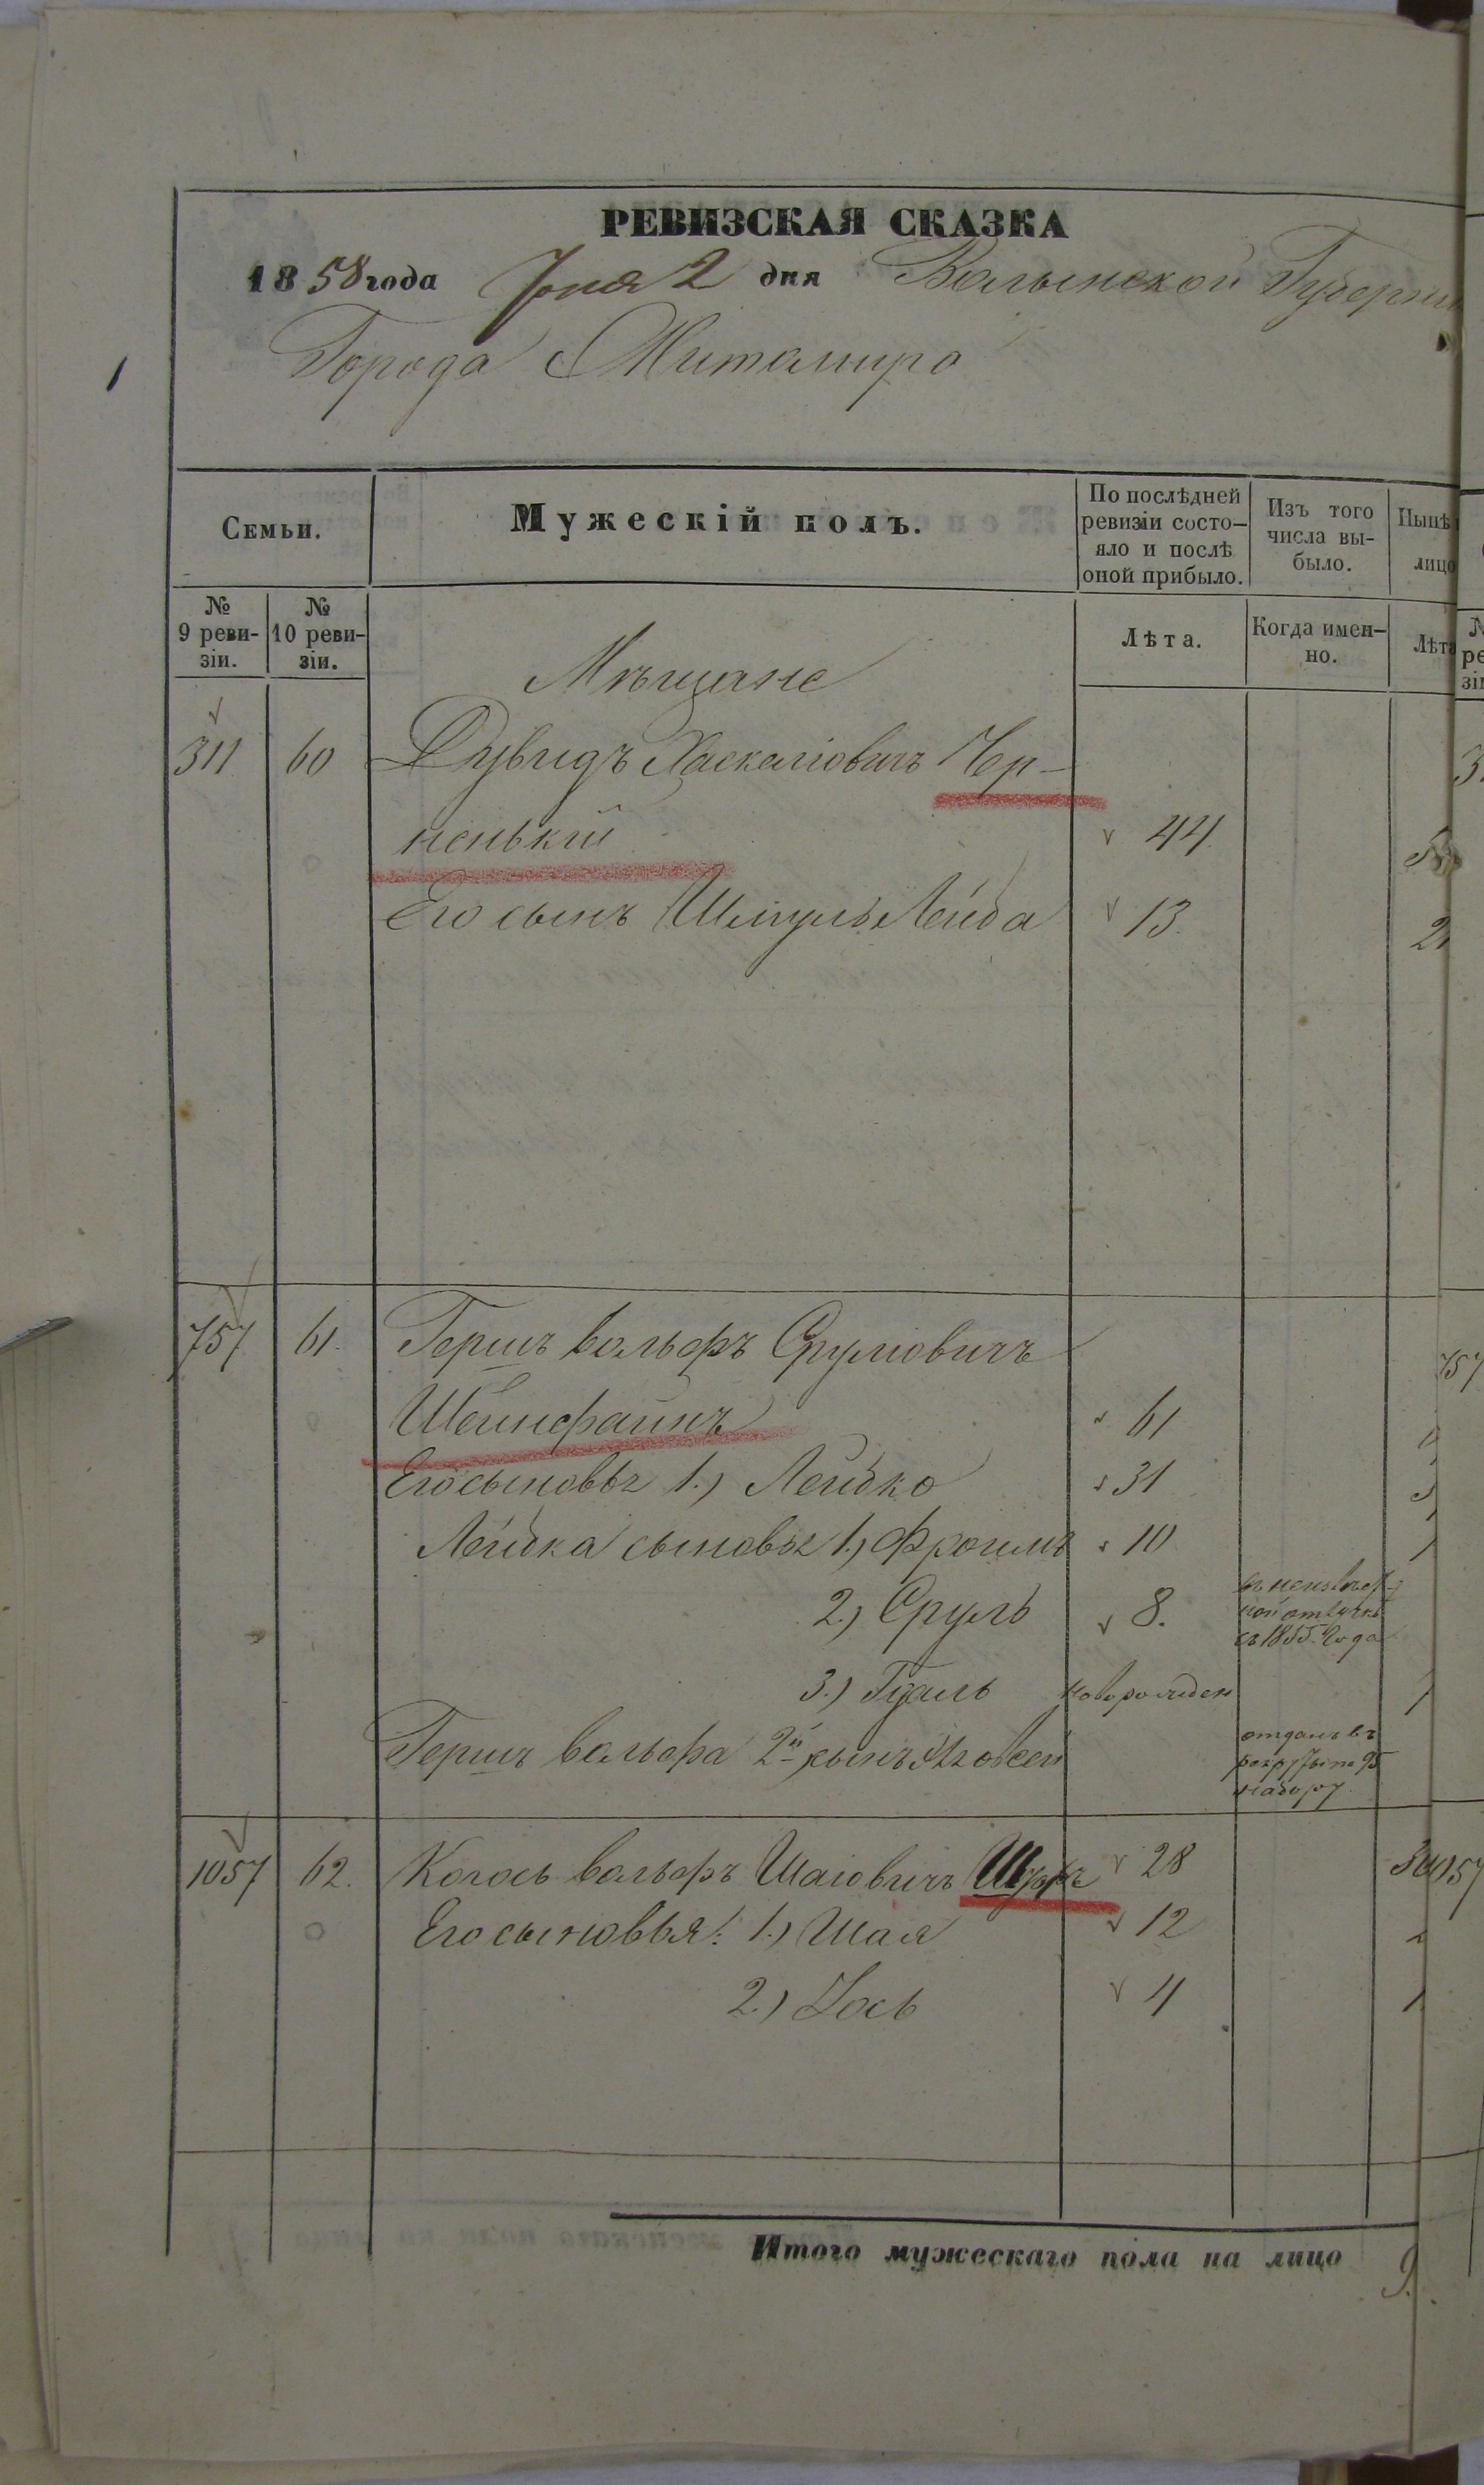 РЕВИЗСКАЯ СКАЗКА
1858 года Іюня 2 дня Волынской Губерніи
Города Житомира
Семьи.
Мужескій полъ.
По послѣдней ревизіи состо-
яло и послѣ
оной прибыло.
Изъ того
числа вы-
было.
Нынѣ
лицо
№
9 реви-
зіи.
№
10 реви-
зіи.
Лѣта.
Когда имен-
но.
Лѣта
Мѣщане
311 60 Дувидъ Хаскеліовичъ Чер-
ненькій 44
Его сынъ Шмуль Лейба 13.
757 61. Гершъ Вольфъ Сруліовичъ
Шейнфайнъ 61
Его сыновья 1.) Лейбко 31
Лейбка сыновья 1.) Фроимъ 10
2.) Сруль 8.
въ неизвѣст-
ной отлучкѣ
съ 1855. года
3.) Гдаль новорожден
Гершъ Вольфа 2й сынъ
отданъ въ
рекруты по 95
набору
1057 62. Вольфъ Шаіовичъ 28
Его сыновья: 1.) Шая 12
2.) Іось 4
Итого мужескаго пола на лицо 9.